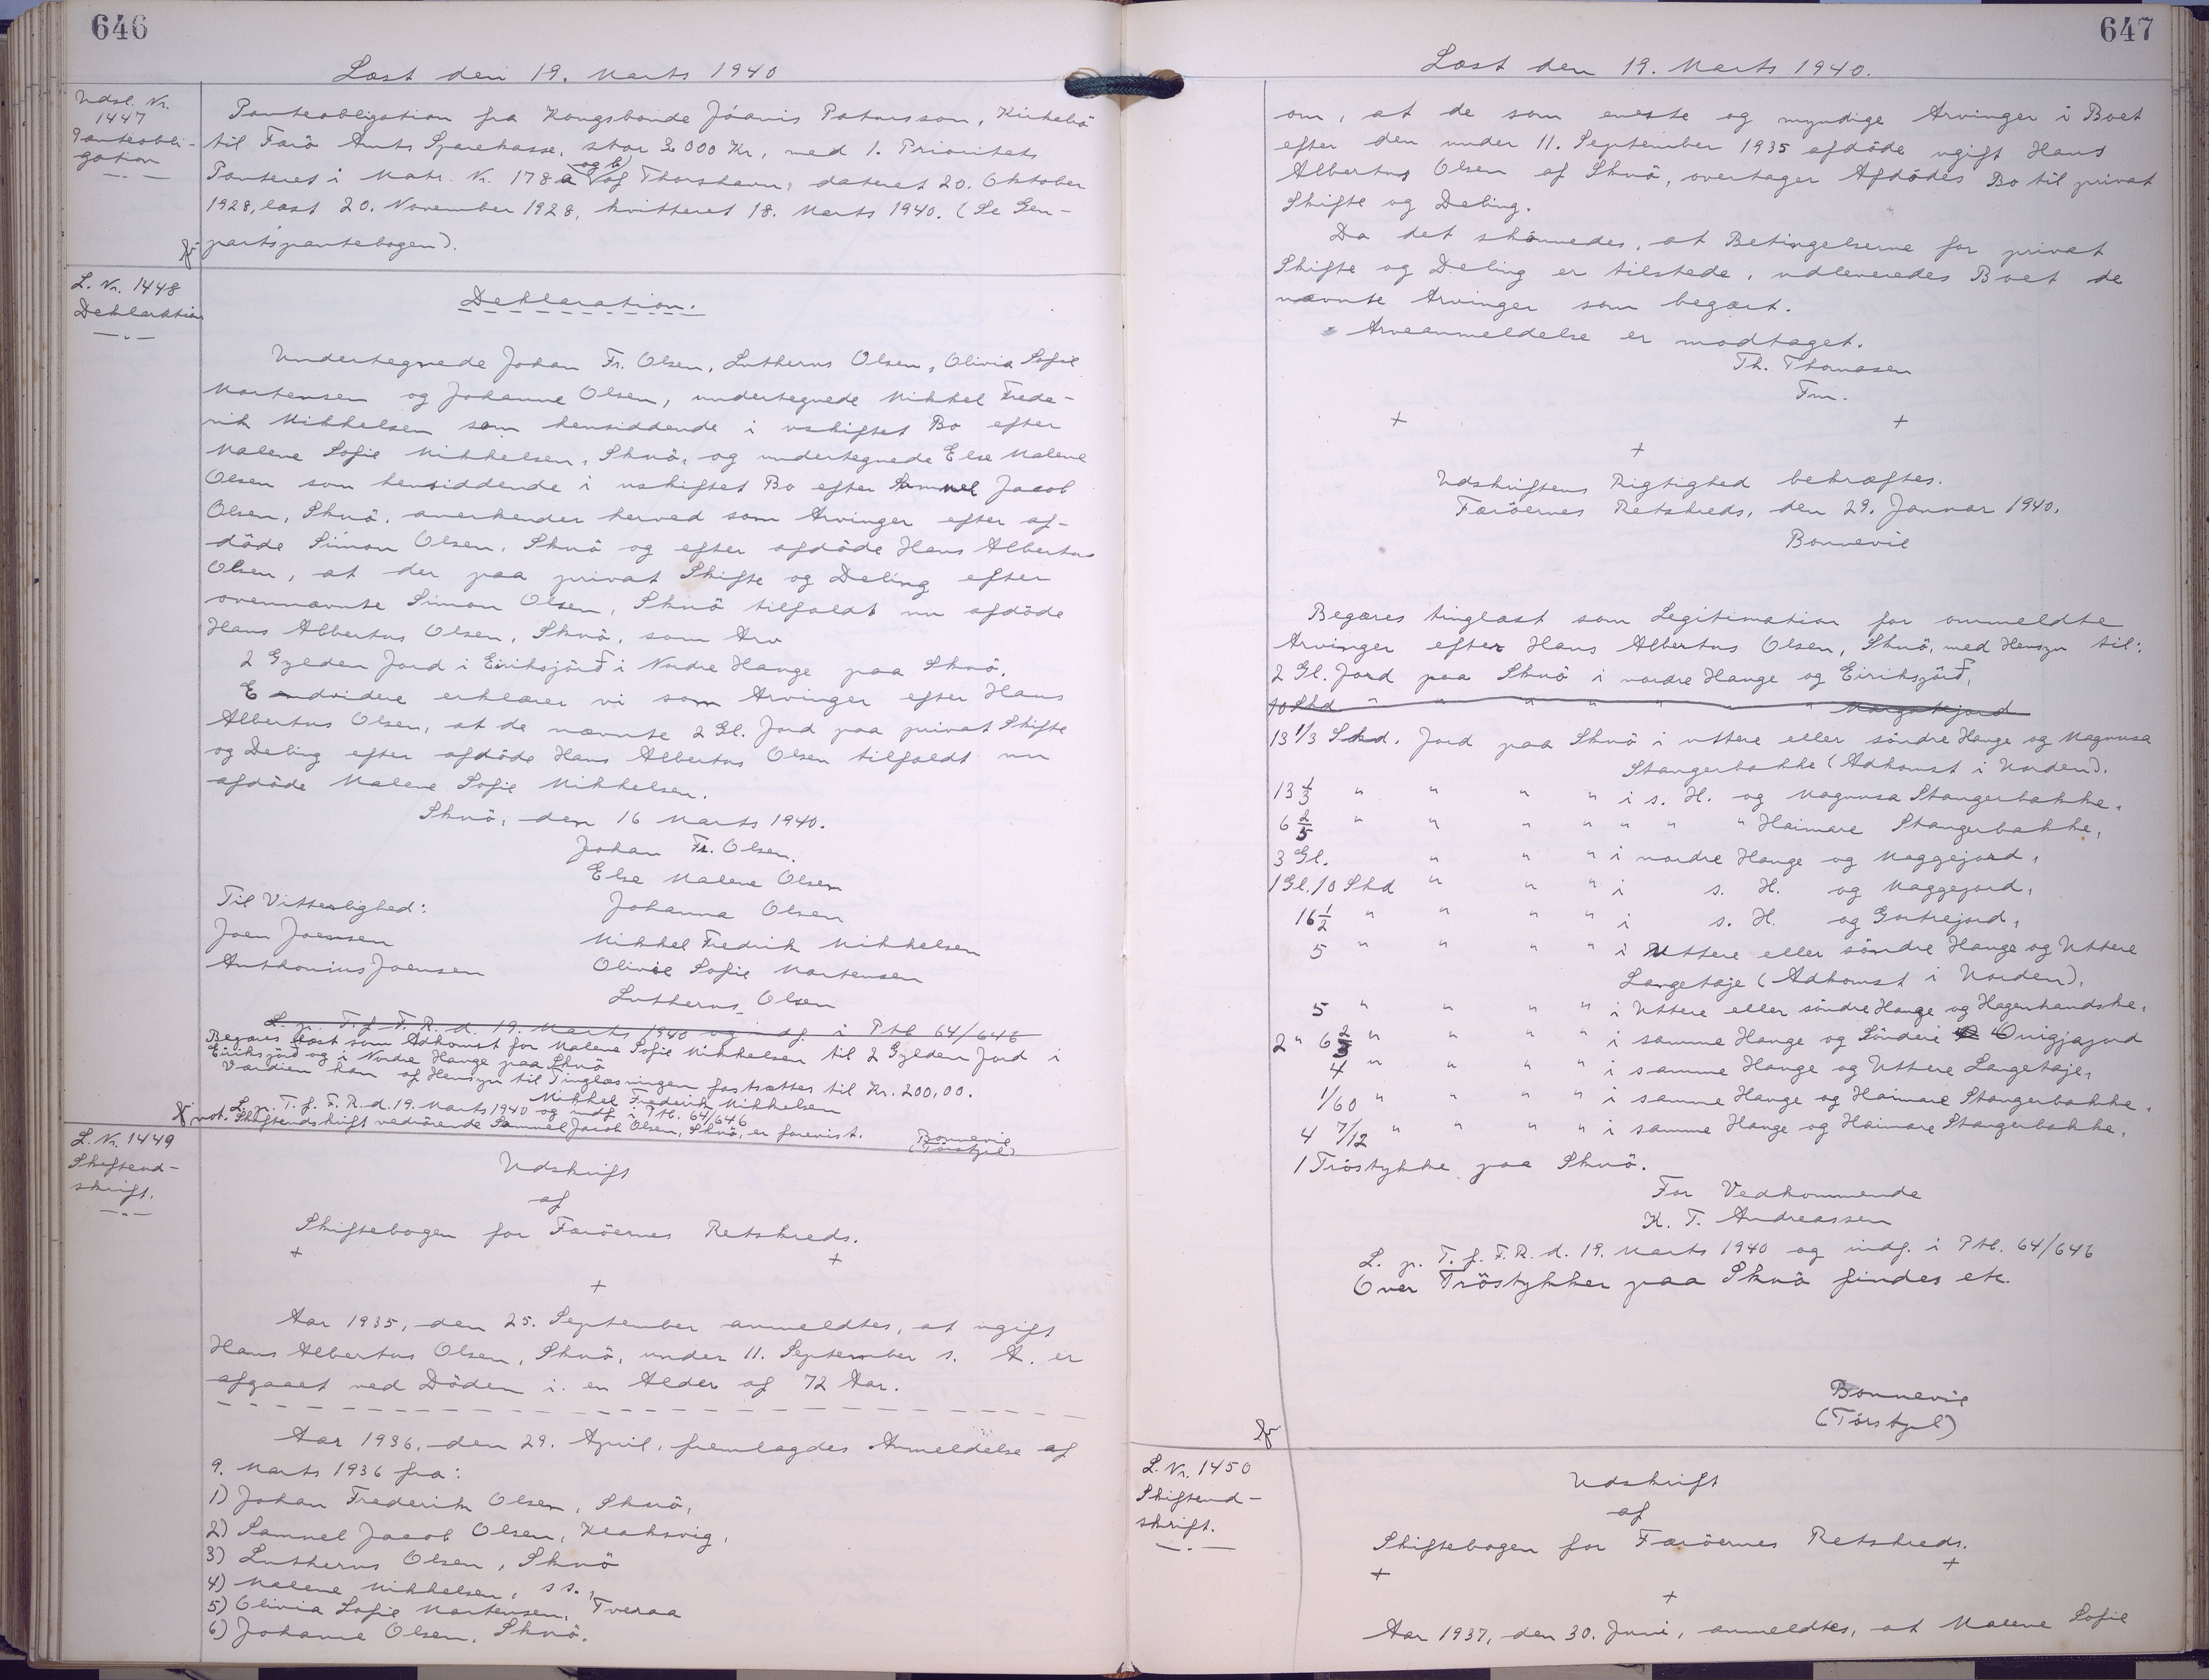 646
Læst den 19. Marts 1940
Udsl. Nr.
1447
Panteobli-
gation
Panteobligation fra Kongsbonde Jóanis Patursson, Kirkebö
til Færö Amts Sparekasse, stor 2000 Kr, med 1. Prioritets
og b)
Panteret i Matr. Nr. 178a af Thorshavn, dateret 20. Oktober
1928, læst 20. November 1928, kvitteret 18. Marts 1940. (Se Gen-
partspantebogen).
L. Nr. 1448
Deklaration
Deklaration.
Undertegnede Johan Fr. Olsen, Lutherus Olsen, Olivia Sofie
Mortensen og Johanne Olsen, undertegnede Mikkel Frede-
rik Mikkelsen som hensiddende i uskiftet Bo efter
Malene Sofie Mikkelsen, Skuö, og undertegnede Else Malene
Olsen som hensiddende i uskiftet Bo efter Samuel Jacob
Olsen, Skuö, anerkender herved som Arvinger efter af-
döde Simon Olsen, Skuö og efter afdöde Hans Albertus
Olsen, at der paa privat Skifte og Deling efter
ovennævnte Simon Olsen, Skuö tilfaldt nu afdöde
Hans Albertus Olsen, Skuö, som Arv
2 Gylden Jord i Eiriksjörð i Nordre Hauge paa Skuö.
Endvidere erklærer vi som Arvinger efter Hans
Albertus Olsen, at de nævnte 2 Gl. Jord paa privat Skifte
og Deling efter afdöde Hans Albertus Olsen tilfaldt nu
afdöde Malene Sofie Mikkelsen.
Skuö, den 16 Marts 1940.
Johan Fr. Olsen.
Else Malene Olsen
Til Vitterlighed:
Johanna Olsen
Joen Joensen
Mikkel Fredrik Mikkelsen
Anthonius Joensen
Olivie Sofie Mortensen
Lutherus Olsen
L. p. T. f. F. R. d. 19. Marts 1940 og indf. i Ptb 64/646
Begæres læst som Adkomst for Malene Sofie Mikkelsen til 2 Gylden Jord i
Eiriksjörð og i Nordre Hauge paa Skuö
Værdien kan af Hensyn til Tinglæsningen fastsættes til Kr. 200,00.
Mikkel Frederik Mikkelsen
L. p. T. f. F. R. d. 19. Marts 1940 og indf. i Ptb. 64/646
not. Skifteudskrift vedrörende Samuel Jacob Olsen, Skuö, er forevist.
Bonnevie
L. Nr. 1449
Skifteud-
skrift.
Udskrift
af
Skiftebogen for Færöernes Retskreds.
+ +
+
Aar 1935, den 25. September anmeldtes, at ugift
Hans Albertus Olsen, Skuö, under 11. September s. A. er
afgaaet ved Döden i en Alder af 72 Aar.
Aar 1936, den 29. April, fremlagdes Anmeldelse af
9. Marts 1936 fra:
1) Johan Frederik Olsen, Skuö,
2) Samuel Jacob Olsen, Klaksvig,
3) Lutherus Olsen, Skuö
4) Malene Mikkelsen, ss.,
5) Olivia Sofie Mortensen, Tveraa
6) Johanne Olsen, Skuö.
647
Læst den 19. Marts 1940.
om, at de som eneste og myndige Arvinger i Boet
efter den under 11. September 1935 afdöde ugift Hans
Albertus Olsen af Skuö, overtager Afdödes Bo til privat
Skifte og Deling.
Da det skönnedes, at Betingelserne for privat
Skifte og Deling er tilstede, udleveredes Boet de
nævnte Arvinger som begært.
Arveanmeldelse er modtaget.
Th. Thomasen
Fm.
+ +
+
Udskriftens Rigtighed bekræftes.
Færöernes Retskreds, den 29. Januar 1940.
Bonnevie
Begæres tinglæst som Legitimation for ommeldte
Arvinger efter Hans Albertus Olsen, Skuö, med Hensyn til:
2 Gl. Jord paa Skuö i nordre Hauge og Eiriksjörð,
10 Skd " " " " " " "
13 1/3 Skd. Jord paa Skuö i uttere eller söndre Hauge og Magnusa
Stangerbakke (Adkomst i Norden).
13 1/3 " " " " i s. H. og Magnusa Stangerbakke,
6 2/5 " " " " " " " Heimare Stangerbakke,
3 Gl. " " " i nordre Hauge og Maggejord,
1 Gl. 10 Skd " " " i s. H. og Maggejord,
16 1/2 " " " " i s. H. og Gortrejord,
5 " " " " i Uttere eller söndre Hauge og Uttere
Langetoje (Adkomst i Norden),
5 " " " " i Uttere eller söndre Hauge og Hagenhandske,
2 " 6 2/3 " " " " i samme Hauge og Sönderi Quigjajord
4 " " " " i samme Hauge og Uttere Langetoje,
1/60 " " " " i samme Hauge og Haimare Stangerbakke,
4 7/12 " " " " i samme Hauge og Haimare Stangerbakke,
1 Tröstykke paa Skuö.
For Vedkommende
K. T. Andreassen
L. p. T. f. F. R. d. 19. Marts 1940 og indf. i Ptb. 64/646
Over Tröstykker paa Skuö findes etc.
Bonnevie
L. Nr. 1450
Skifteud-
skrift.
Udskrift
af
Skiftebogen for Færöernes Retskreds.
+ +
+
Aar 1937, den 30. Juni, anmeldtes, at Malene Sofie